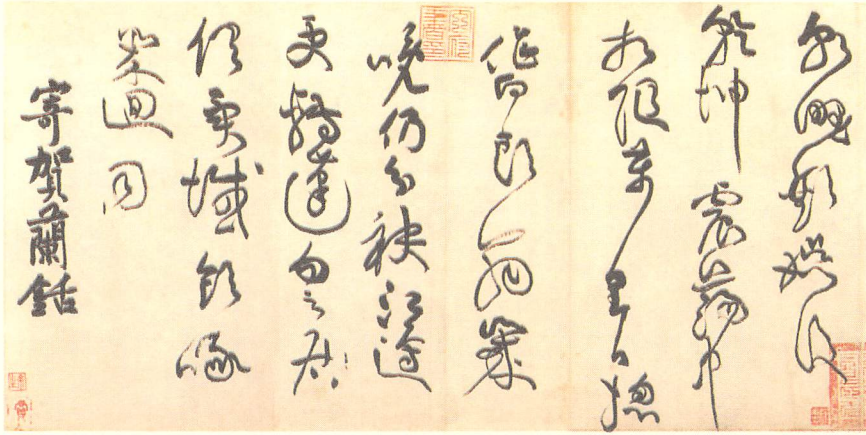 朝野歡娛後
乾坤震蕩中
相隨萬里日總
作白頭翁歲
晚仍分袂江邊
更轉蓬勿云君
俱異域飲啄
幾迴同
寄賀蘭銛